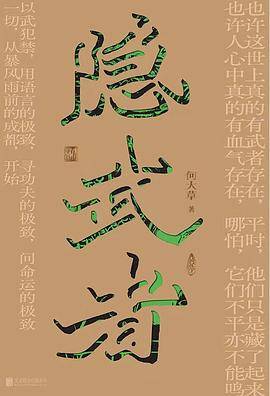 也许这世上真的有武者存在，平时，他们只是藏了起来
也许人心中真的有血气存在，哪怕，它们不平亦不能鸣
隐武者
何大草 著
以武犯禁，用语言的极致，寻功夫的极致，问命运的极致
一切，从暴风雨前的成都，开始